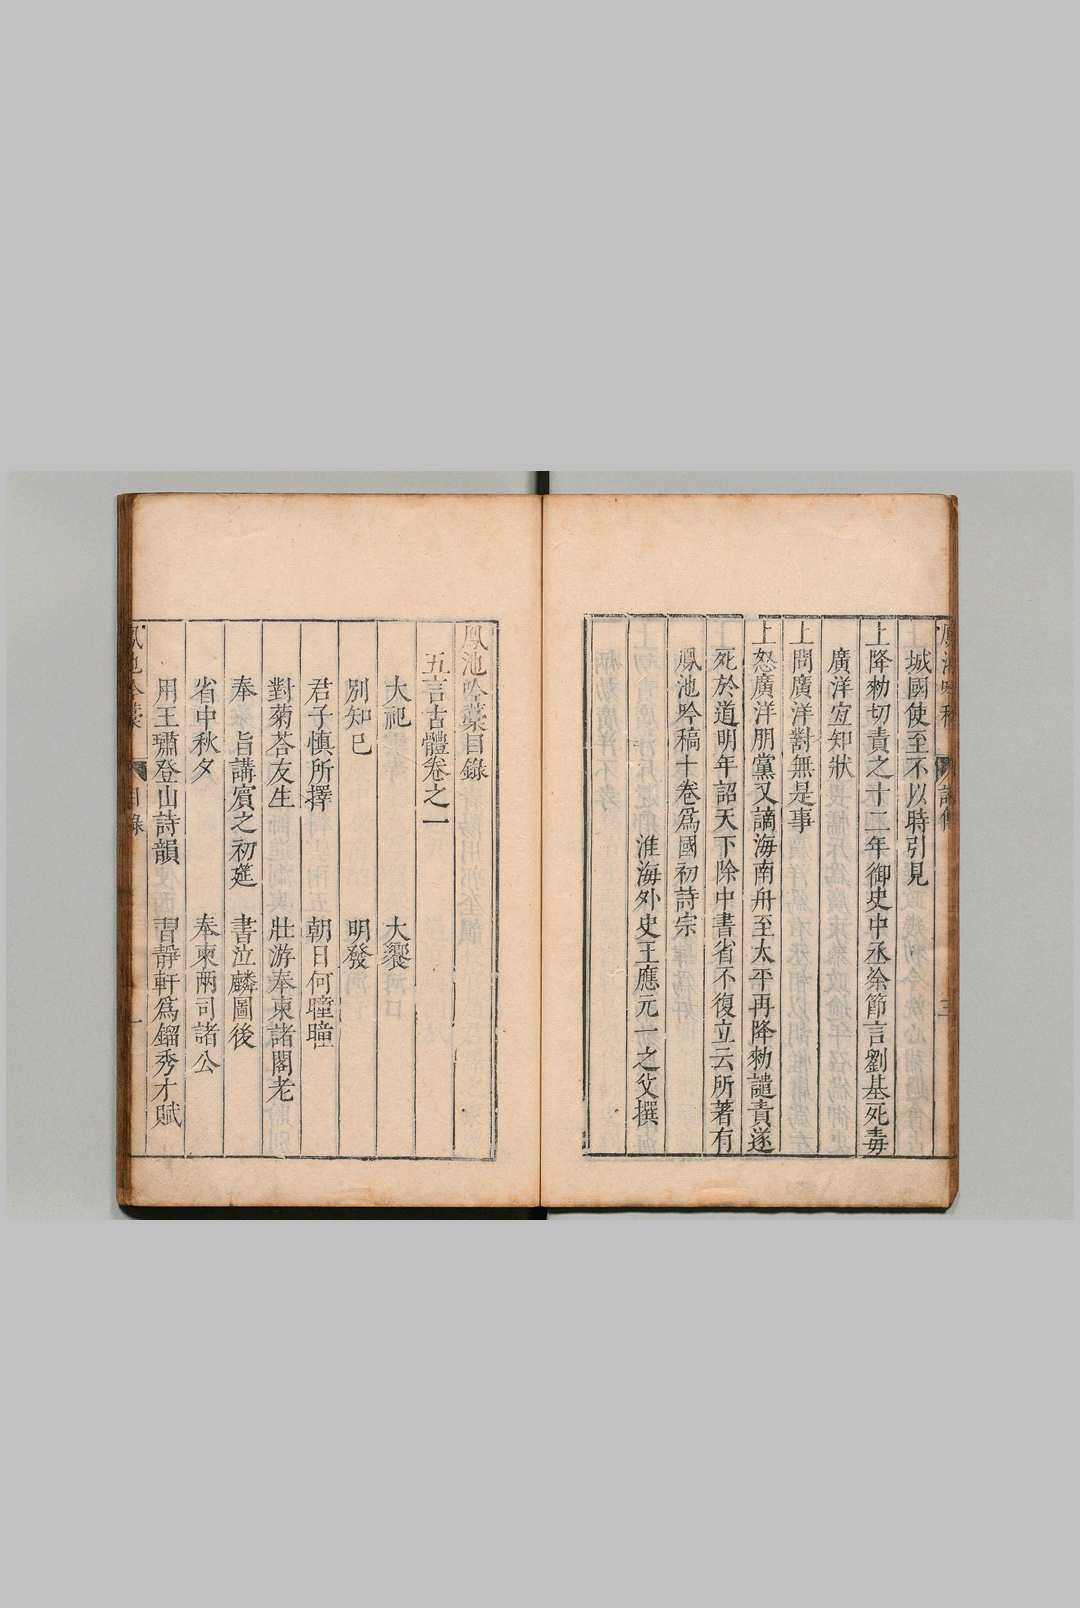 城國使至不以時引見
上降勑切責之十二年御史中丞涂節言劉基死毒
廣洋宜知狀
上問廣洋對無是事
上怒廣洋朋黨又謫海南舟至太平再降勑譴責遂
死於道明年詔天下除中書省不復立云所著有
鳳池吟稿十卷爲國初詩宗
淮海外史王應元一之父撰
鳳池吟藁目錄
五言古體卷之一
大祀 大饗
別知己 明發
君子慎所擇 朝日何曈曈
對菊荅友生 壯游奉柬諸閣老
奉 旨講賓之初筵 書泣麟圖後
省中秋夕 奉柬兩司諸公
用王璛登山詩韻 習靜軒爲鎦秀才賦
鳳池吟藁 目錄 一